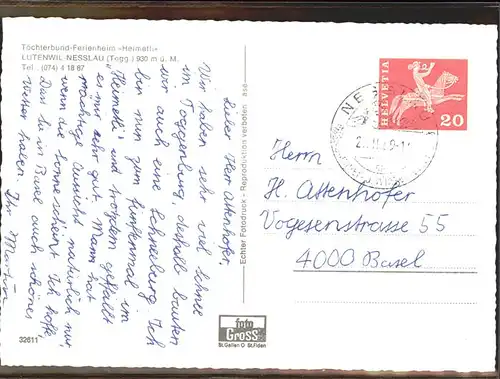 Töchterbund-Ferienheim «Heimetli»
LUTENWIL-NESSLAU (Togg.) 930 m ü. M.
Tel. (074) 4 18 87
Lieber Herr Attenhofer,
Wir haben sehr viel Schnee
im Toggenburg, deshalb bauten
wir auch eine Schneeburg. Ich
bin nun zum fünftenmal im
"Heimetli" und trotzdem gefällt
es mir sehr gut. Mann hat
prächtige Aussicht natürlich nur,
wenn die Sonne scheint. Ich hoffe,
dass Sie in Basel auch schönes
Wetter haben.
Echter Fotodruck - Reproduktion verboten
HELVETIA
20
Herrn
H. Attenhofer
Vogesenstrasse 55
4000 Basel
foto
Gross
St. Gallen O St. Fiden
32611